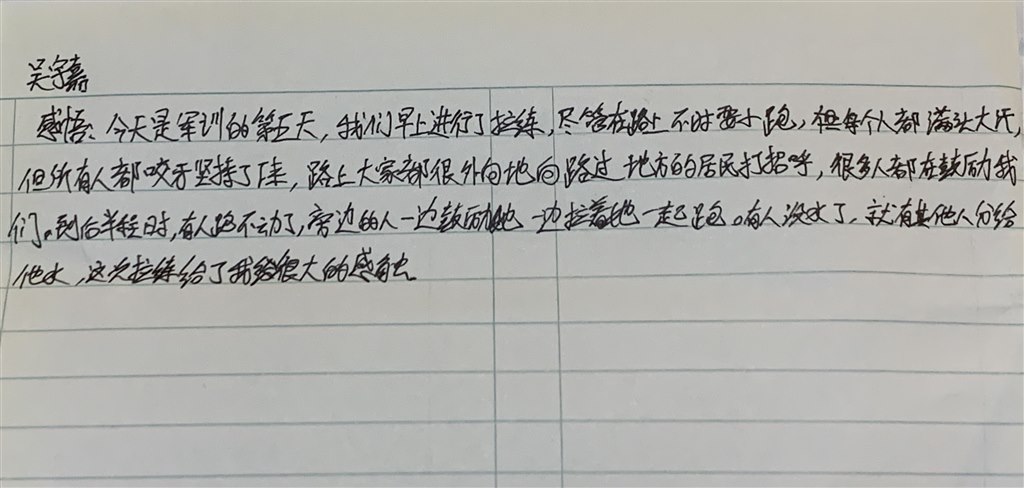 吴宇嘉
感悟：今天是军训的第五天，我们早上进行了拉练，尽管在路上不时要小跑，但每个人都满头大汗，
但所有人都咬牙坚持了下来，路上大家都很外向地向路过地方的居民打招呼，很多人都在鼓励我
们。到后半程时，有人跑不动了，旁边的人一边鼓励她一边拉着她一起跑。有人没水了，就有其他人分给
他水，这次拉练给了我很大的感触。